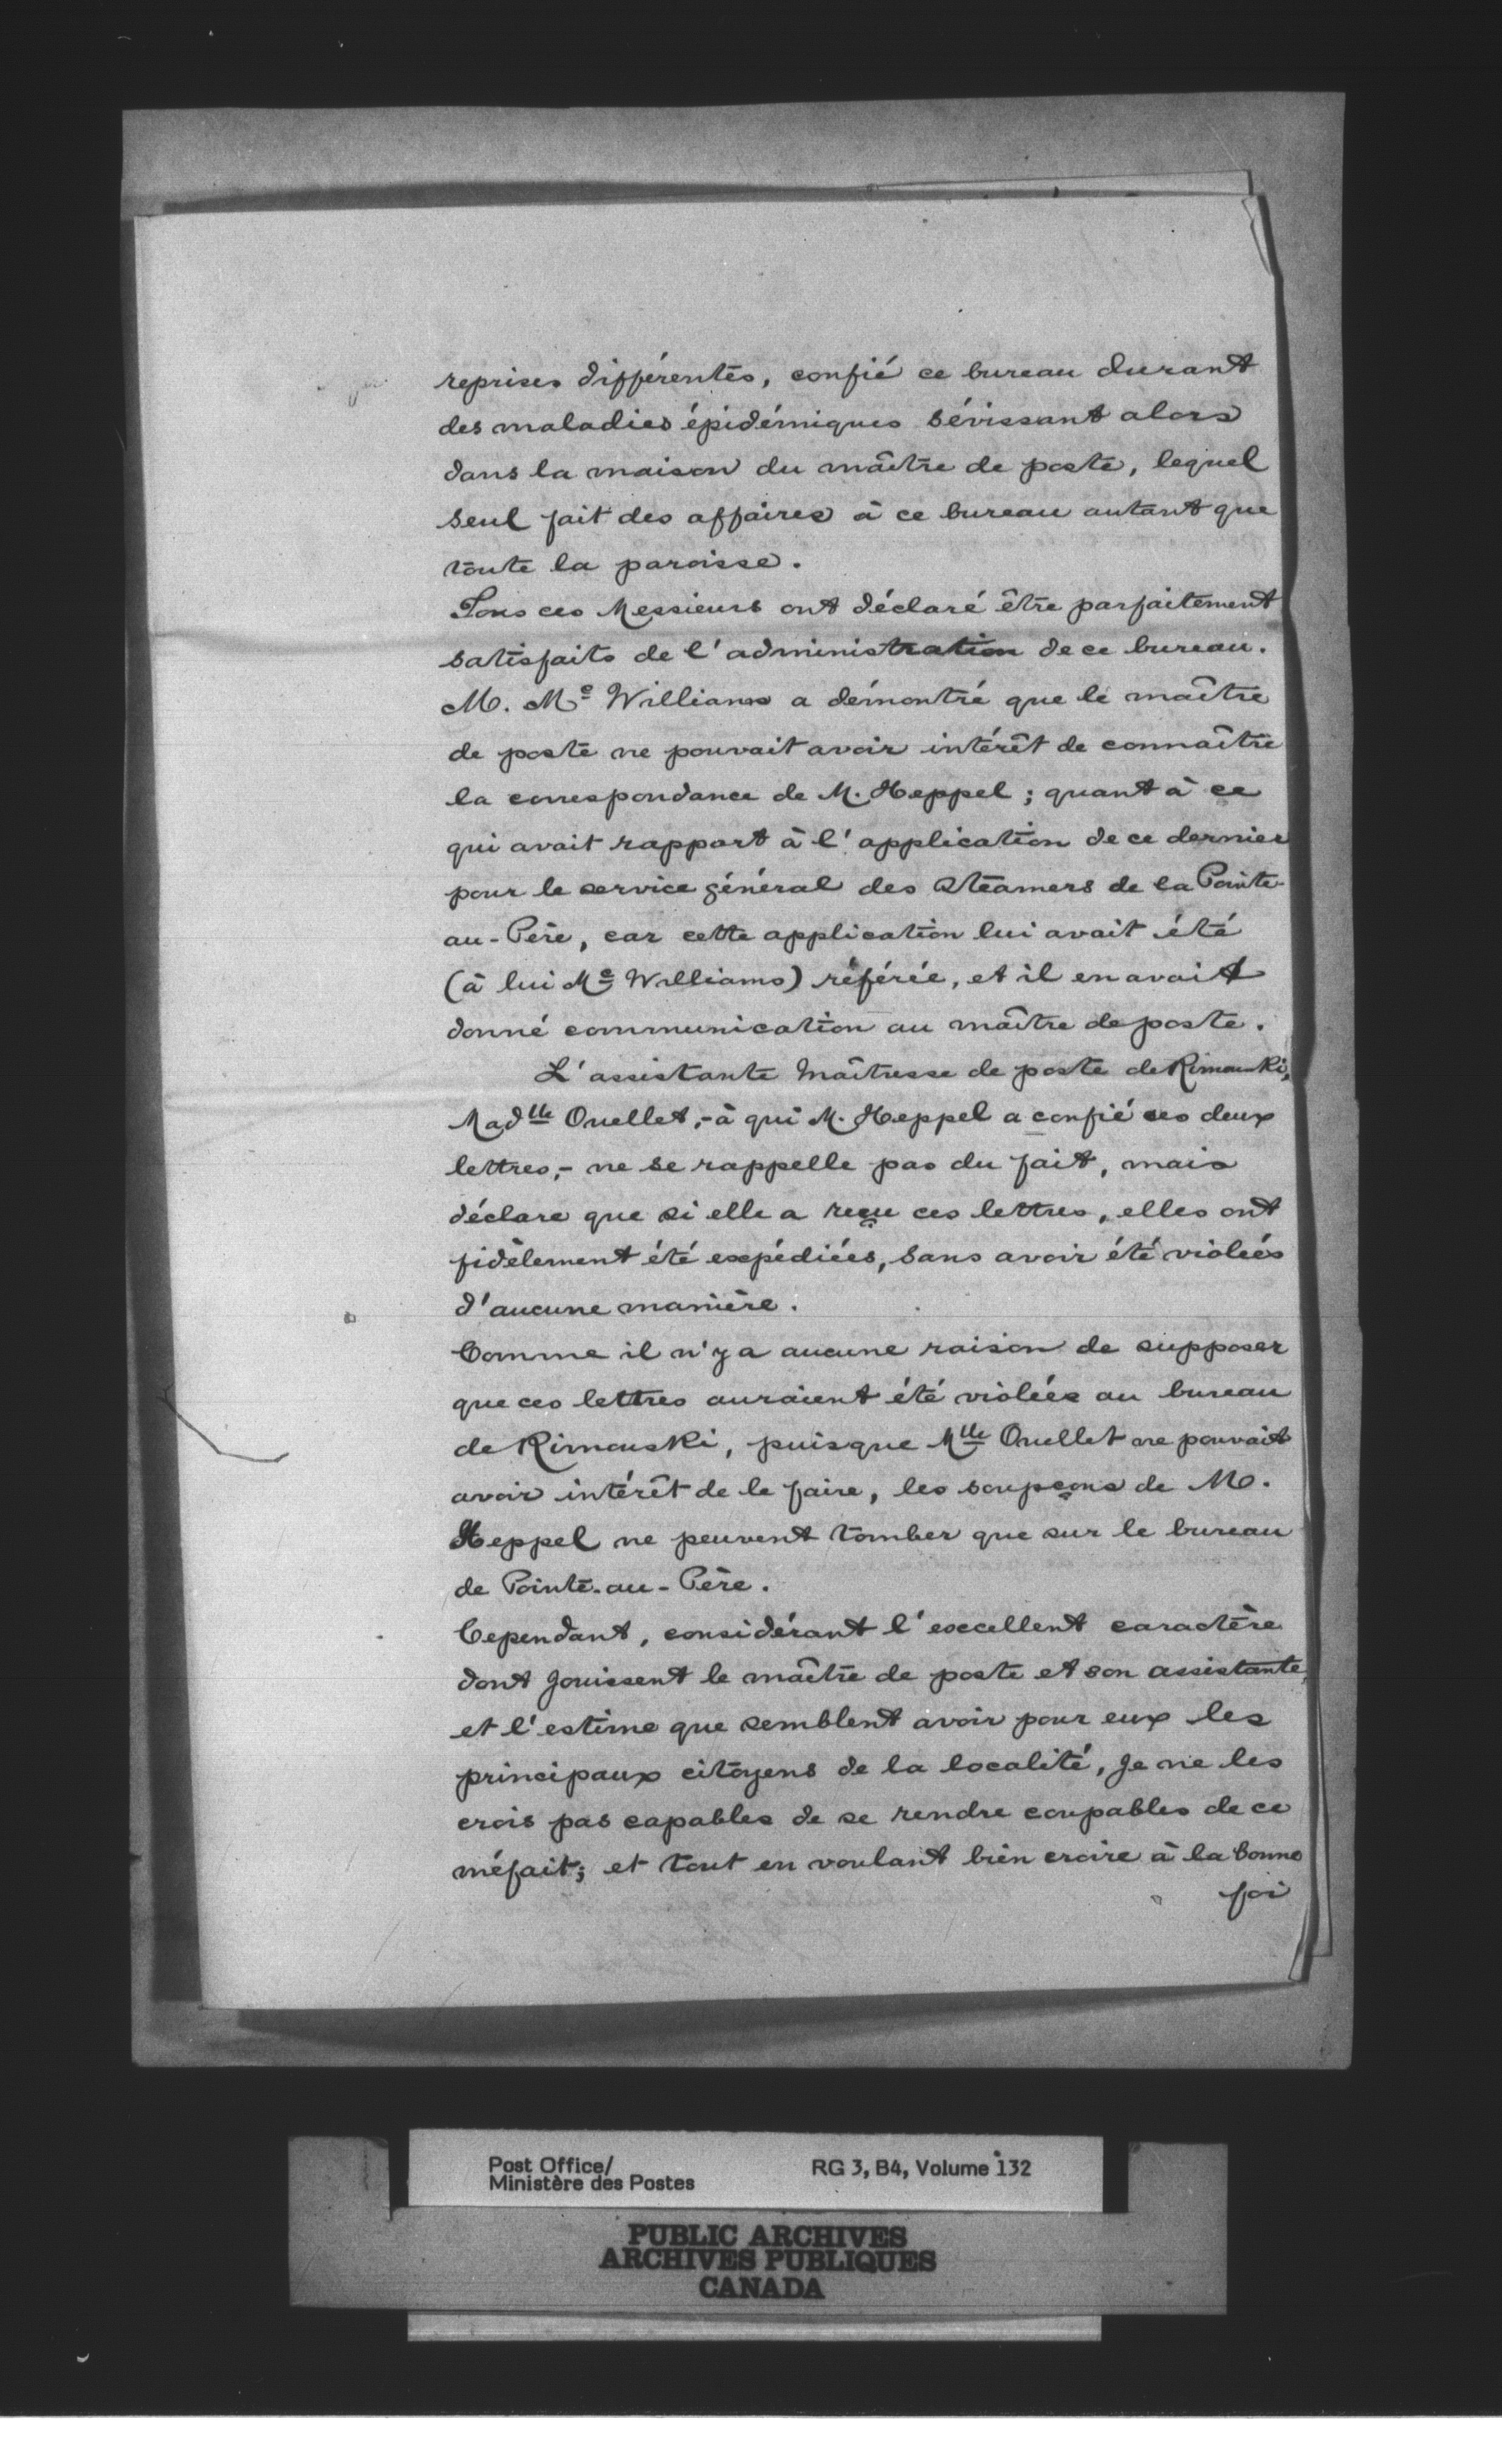 reprises différentes, confié ce bureau durant
des maladies épidémiques sévissant alors
dans la maison du maître de poste, lequel
seul fait des affaires à ce bureau autant que
toute la paroisse.
Tous ces Messieurs ont déclaré être parfaitement
satisfaits de l'administration de ce bureau.
M. Mc Williams a démontré que le maître
de poste ne pouvait avoir intérêt de connaître
la correspondance de M. Heppel ; quant à ce
qui avait rapport à l'application de ce dernier
pour le service général des Steamers de la Pointe-
au-Père, car cette application lui avait été
(à lui Mc Williams) référée, et il en avait
donné communication au maître de poste.
L'assistante maîtresse de poste de Rimouski,
Madlle Ouellet,- à qui M. Heppel a confié ces deux
lettres,- ne se rappelle pas du fait, mais
déclare que si elle a reçu ces lettres, elles ont
fidèlement été expédiées, sans avoir été violées
d'aucune manière.
Comme il n'y a aucune raison de supposer
que ces lettres auraient été violées au bureau
de Rimouski, puisque Mlle Ouellet ne pouvait
avoir intérêt de le faire, les soupçons de M.
Heppel ne peuvent tomber que sur le bureau
de Pointe-au-Père.
Cependant, considérant l'excellent caractère
dont jouissent le maître de poste et son assistante,
et l'estime que semblent avoir pour eux les
principaux citoyens de la localité, je ne les
crois pas capables de se rendre coupables de ce
méfait; et tout en voulant bien croire à la bonne
foi
Post Office/
Ministère des Postes
RG 3, B4, Volume 132
PUBLIC ARCHIVES
ARCHIVES PUBLIQUES
CANADA